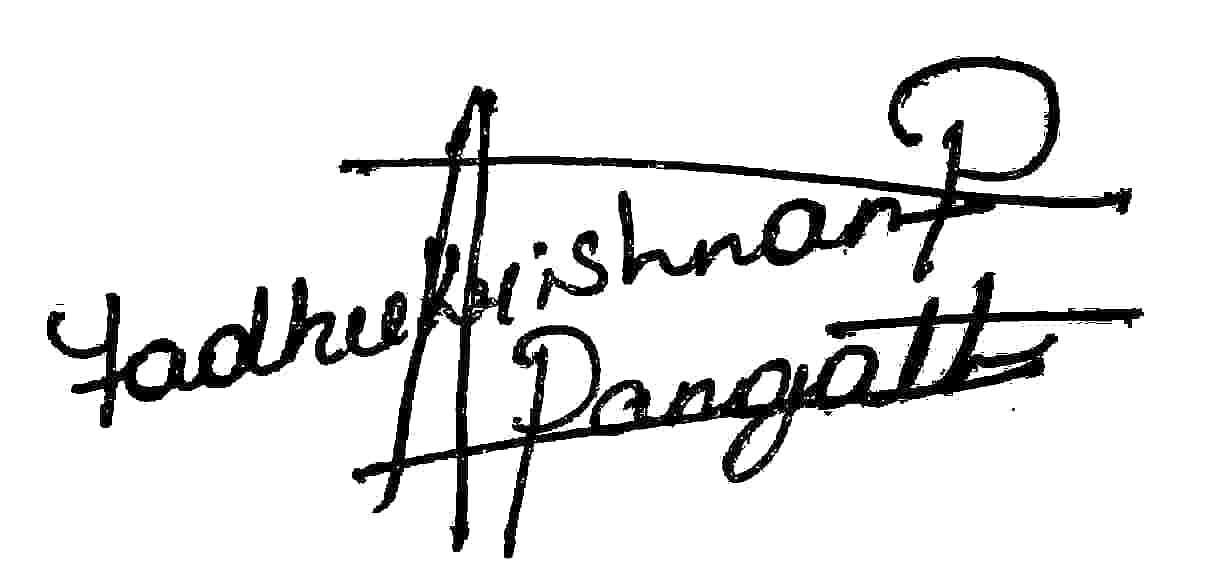 Yadhukrishnan P
Pangatt